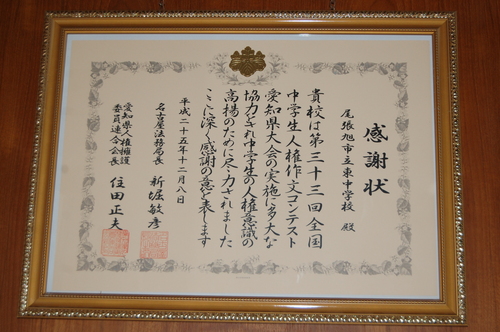 感謝状
尾張旭市立東中学校 殿
貴校は第三十三回全国
中学生人権作文コンテスト
愛知県大会の実施に多大な
協力をされ中学生の人権意識の
高揚のために尽力されました
ここに深く感謝の意を表します
平成二十五年十二月八日
名古屋法務局長 新堀敏彦
愛知県人権擁護
委員連合会長 住田正夫